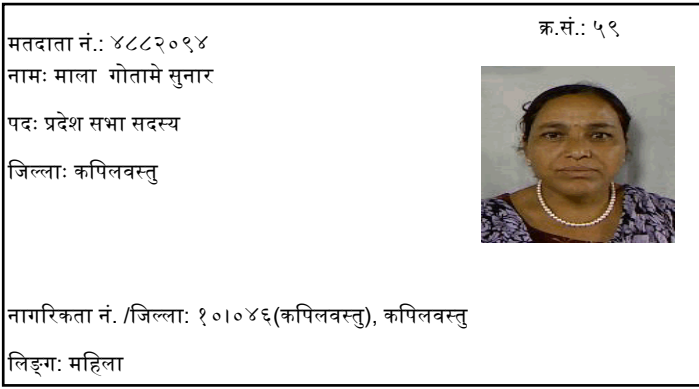 क्र.सं.: ५९
मतदाता नं.: ४८८२०९४
नामः माला गोतामे सुनार
पदः प्रदेश सभा सदस्य
जिल्लाः कपिलवस्तु
नागरिकता नं. /जिल्ला: १०।०४६(कपिलवस्तु), कपिलवस्तु
लिङ्ग: महिला